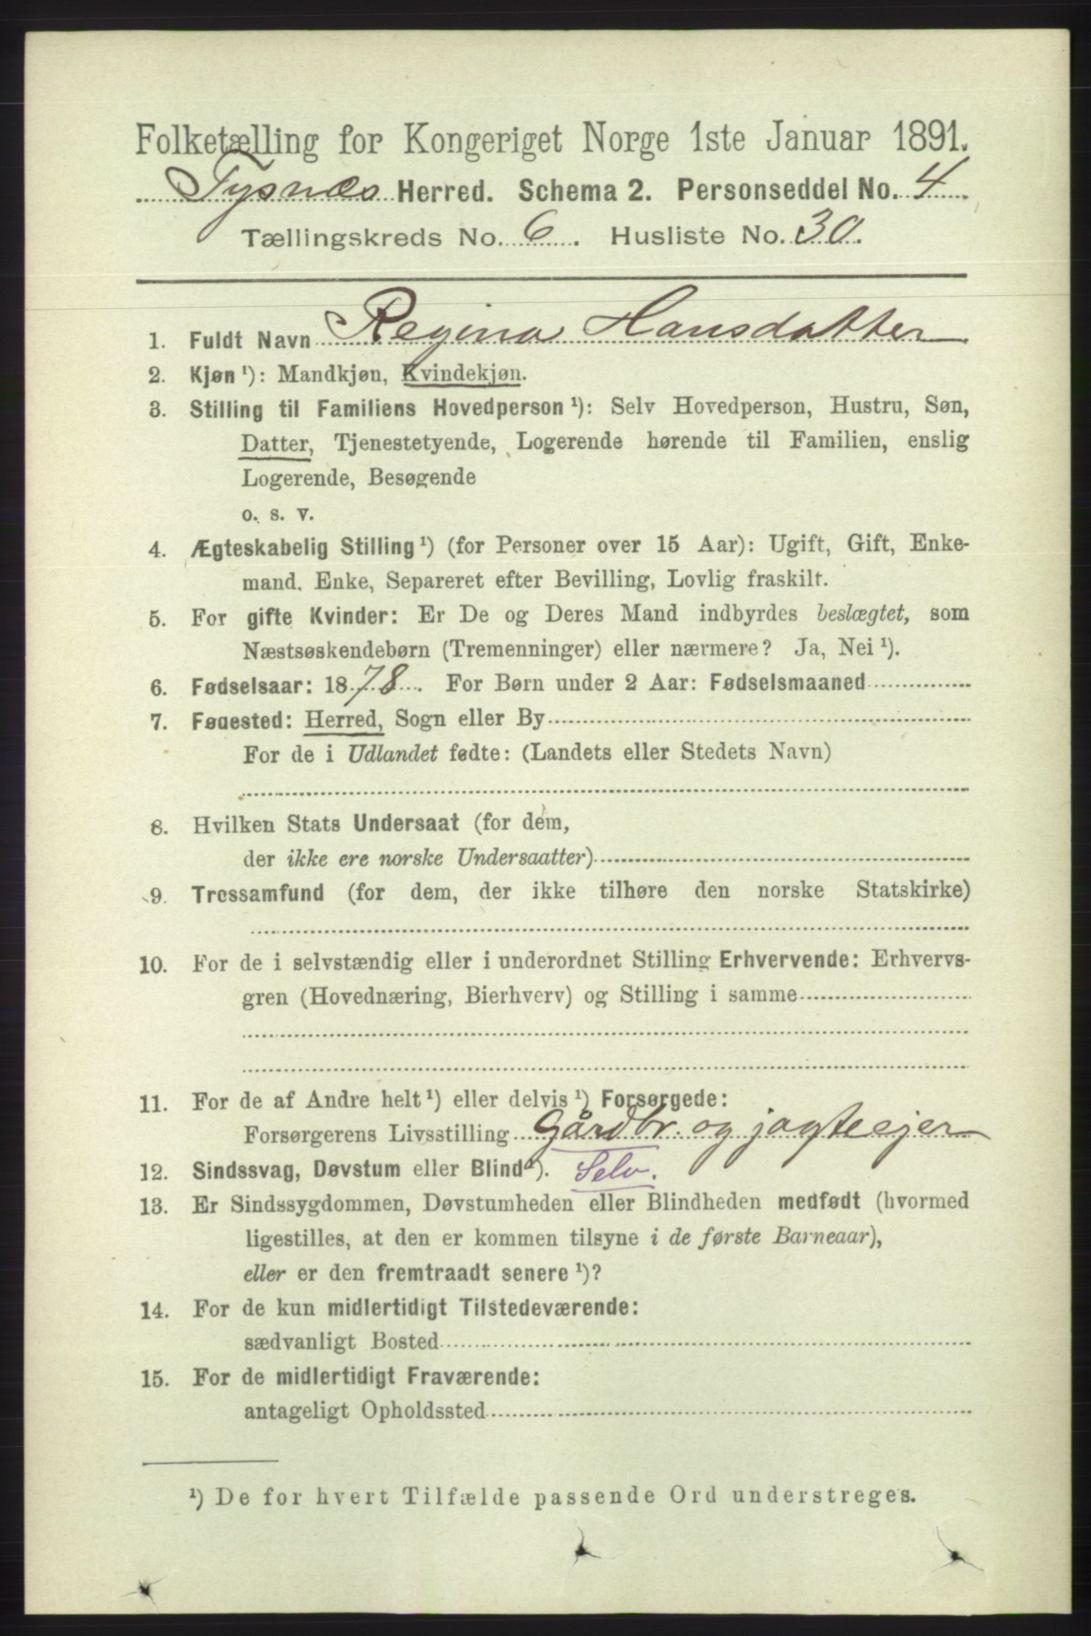 Folketælling for Kongeriget Norge 1ste Januar 1891.
Tysnæs Herred. Schema 2. Personseddel No. 4
Tællingskreds No. 6. Husliste No. 30.
1. Fuldt Navn Regina Hansdatter
2. Kjøn ¹): Mandkjøn, Kvindekjøn.
3. Stilling til Familiens Hovedperson ¹): Selv Hovedperson, Hustru, Søn,
Datter, Tjenestetyende, Logerende hørende til Familien, enslig
Logerende, Besøgende
o. s. v.
4. Ægteskabelig Stilling ¹) (for Personer over 15 Aar): Ugift, Gift, Enke-
mand, Enke, Separeret efter Bevilling, Lovlig fraskilt.
5. For gifte Kvinder: Er De og Deres Mand indbyrdes beslægtet, som
Næstsøskendebørn (Tremenninger) eller nærmere? Ja, Nei ¹).
6. Fødselsaar: 1878. For Børn under 2 Aar: Fødselsmaaned
7. Føaested: Herred, Sogn eller By
For de i Udlandet fødte: (Landets eller Stedets Navn)
8. Hvilken Stats Undersaat (for dem,
der ikke ere norske Undersaatter)
9. Trossamfund (for dem, der ikke tilhøre den norske Statskirke)
10. For de i selvstændig eller i underordnet Stilling Erhvervende: Erhvervs-
gren (Hovednæring, Bierhverv) og Stilling i samme
11. For de af Andre helt ¹) eller delvis ¹) Forsørgede:
Forsørgerens Livsstilling Gårdbr. og jagteejer
12. Sindssvag, Døvstum eller Blind ¹). Selv.
13. Er Sindssygdommen, Døvstumheden eller Blindheden medfødt (hvormed
ligestilles, at den er kommen tilsyne i de første Barneaar),
eller er den fremtraadt senere ¹)?
14. For de kun midlertidigt Tilstedeværende:
sædvanligt Bosted
15. For de midlertidigt Fraværende:
antageligt Opholdssted
¹) De for hvert Tilfælde passende Ord understreges.